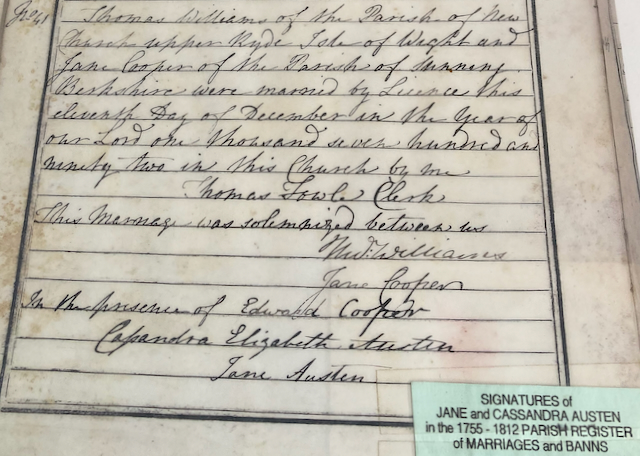 No. 41
Thomas Williams of the Parish of New
Church upper Ryde Isle of Wight and
Jane Cooper of the Parish of Sunning
Berkshire were married by Licence this
eleventh Day of December in the Year of
our Lord one thousand seven hundred and
ninety two in this Church by me
Thomas Fowle Clerk
This Marriage was solemnized between us
Williams
Jane Cooper
In the presence of Edward Cooper
Cassandra Elizabeth Austen
Jane Austen
SIGNATURES of
JANE and CASSANDRA AUSTEN
in the 1755 - 1812 PARISH REGISTER
of MARRIAGES and BANNS